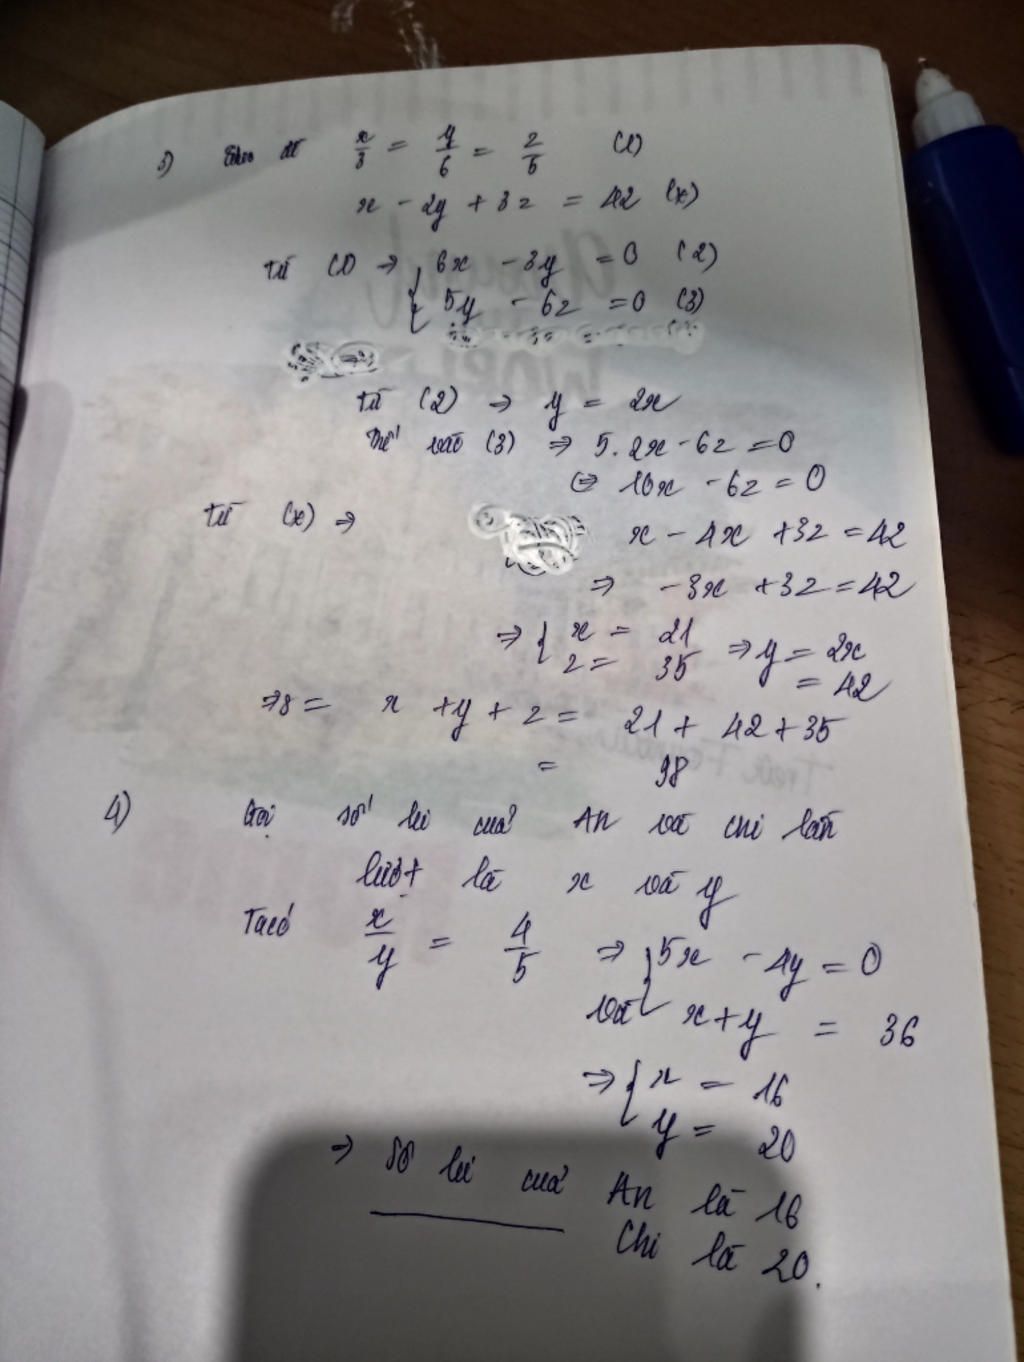 3) Theo đề x/3 = y/6 = z/5 (1)
x - 2y + 3z = 42 (x)
Từ (1) => { 6x - 3y = 0 (2)
5y - 6z = 0 (3)
Từ (2) => y = 2x
Thế vào (3) => 5.2x - 6z = 0
<=> 10x - 6z = 0
Từ (x) => x - 4x + 3z = 42
=> -3x + 3z = 42
=> { x = 21
z = 35 => y = 2x
= 42
=> 8 = x + y + z = 21 + 42 + 35
= 98
4) Gọi số bi của An và Chi lần
lượt là x và y
Ta có x/y = 4/5 => { 5x - 4y = 0
và x + y = 36
=> { x = 16
y = 20
=> Số bi của An là 16
Chi là 20.